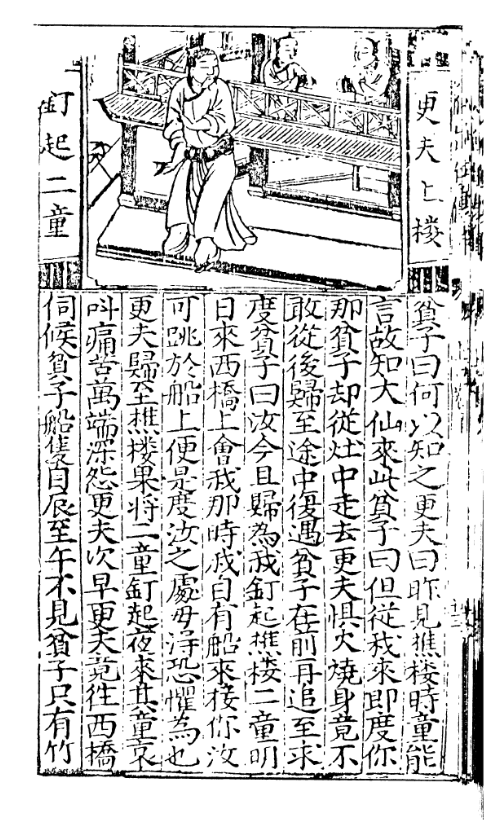 更夫上楼
釘起二童
貧子曰何以知之更夫曰昨見樵楼時童能
言故知大仙來此貧子曰但從我來即度你
那貧子却從灶中走去更夫惧火燒身竟不
敢從後歸至途中復遇貧子在前再追至求
度貧子曰汝今且歸為我釘起樵楼二童明
日來西橋上會我那時我自有船來接你汝
可跳於船上便是度汝之處毋得恐懼為也
更夫歸至樵楼果將二童釘起夜來其童哀
呌痛苦萬端深怨更夫次早更夫竟往西橋
伺候貧子船隻自辰至午不見貧子只有竹